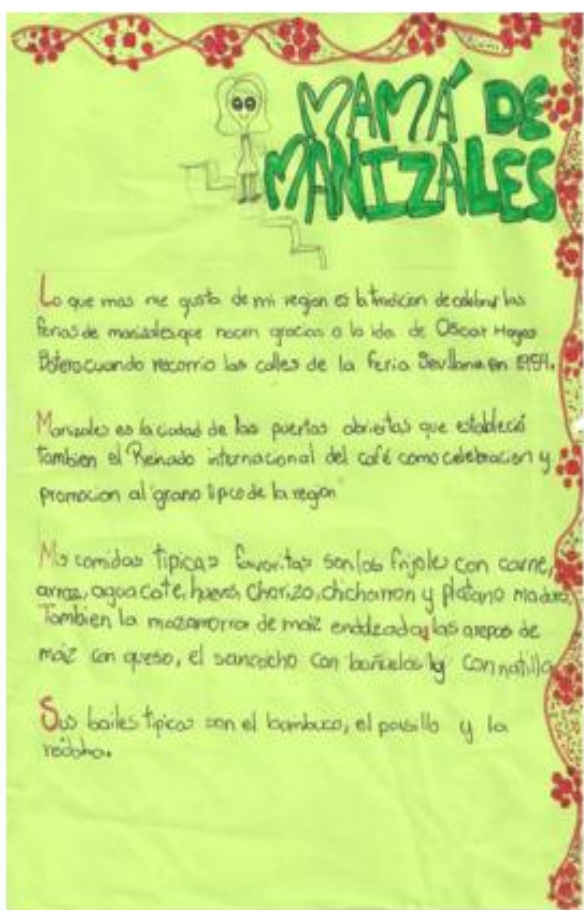 MAMÁ DE
MANIZALES
Lo que mas me gusta de mi region es la tradicion de celebrar las
ferias de manizales que nacen gracias a la ida de Oscar Hoyos
Botero cuando recorrio las calles de la feria Sevillana en 1954.
Manizales es la ciudad de las puertas abiertas que estableció
tambien el Reinado internacional del café como celebracion y
promocion al grano tipico de la region
Mis comidas tipicas favoritas son los frijoles con carne,
arroz, aguacate, huevo, chorizo, chicharron y platano maduro
Tambien la mazamorra de maiz endulzada, las arepas de
maiz con queso, el sancocho con buñuelos y con natilla
Sus bailes tipicos son el bambuco, el pasillo y la